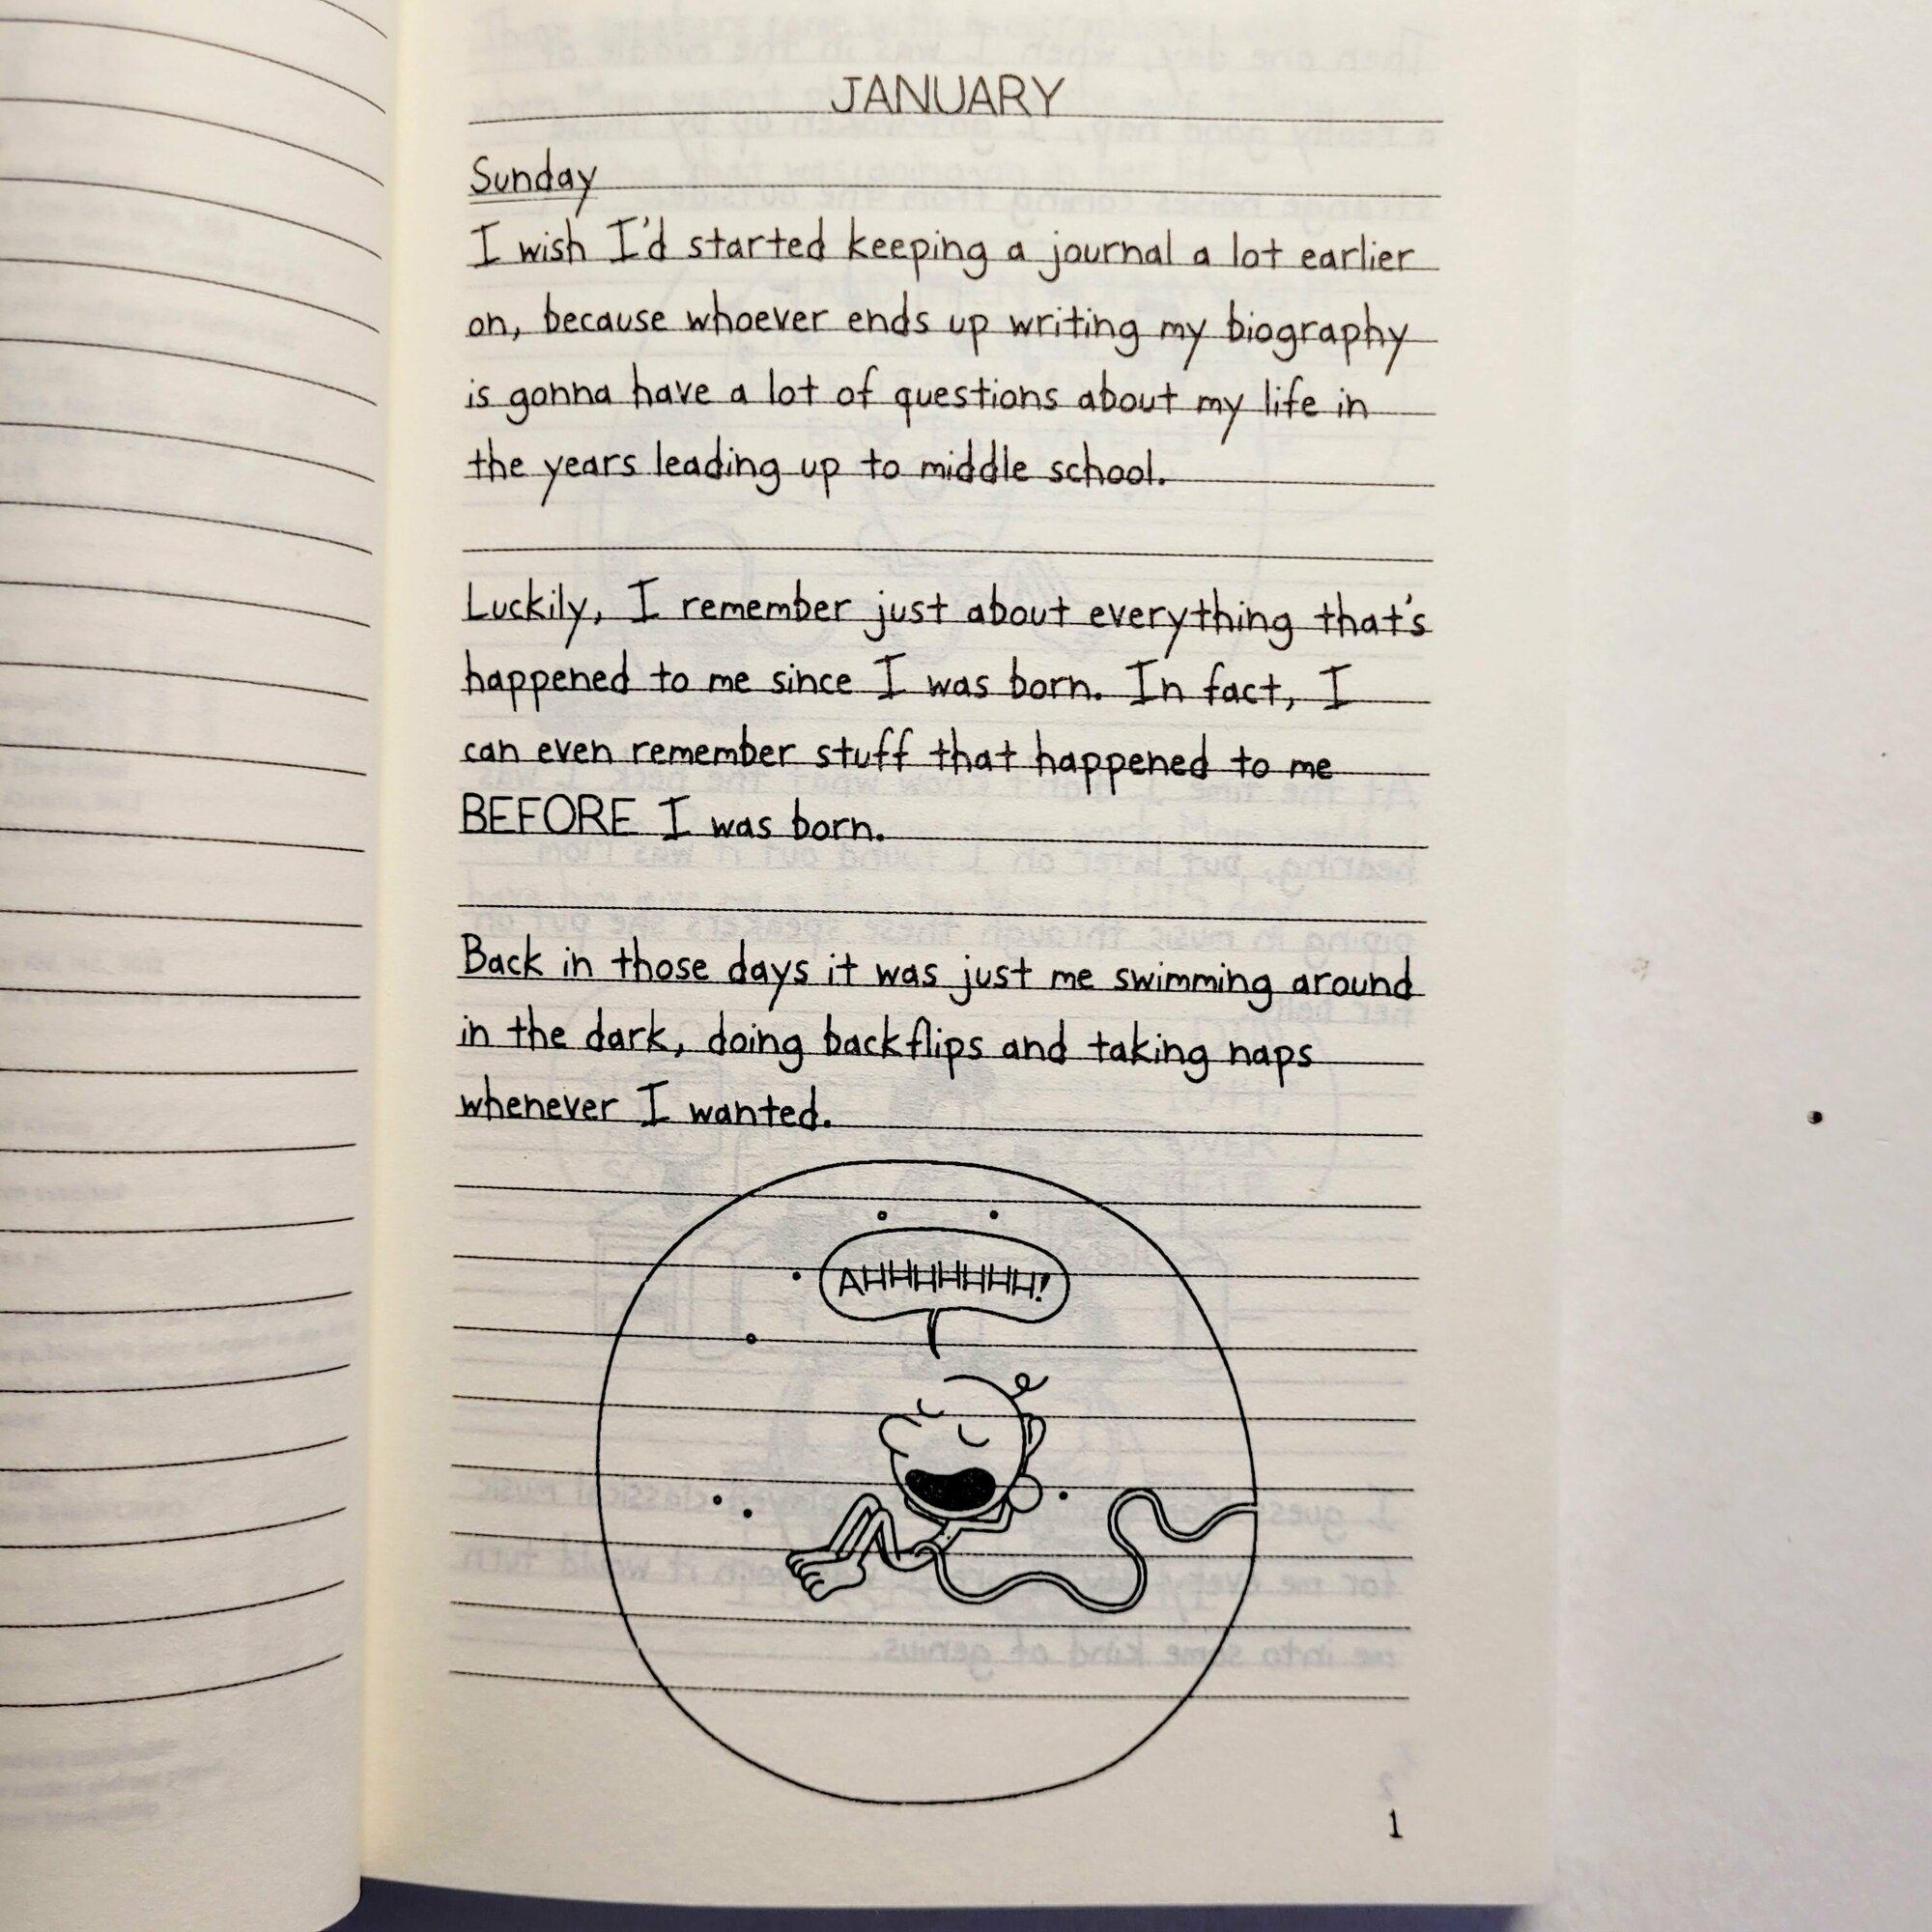 JANUARY
Sunday
I wish I'd started keeping a journal a lot earlier
on, because whoever ends up writing my biography
is gonna have a lot of questions about my life in
the years leading up to middle school.
Luckily, I remember just about everything that's
happened to me since I was born. In fact, I
can even remember stuff that happened to me
BEFORE I was born.
Back in those days it was just me swimming around
in the dark, doing backflips and taking naps
whenever I wanted.
AHHHHHHH!
1